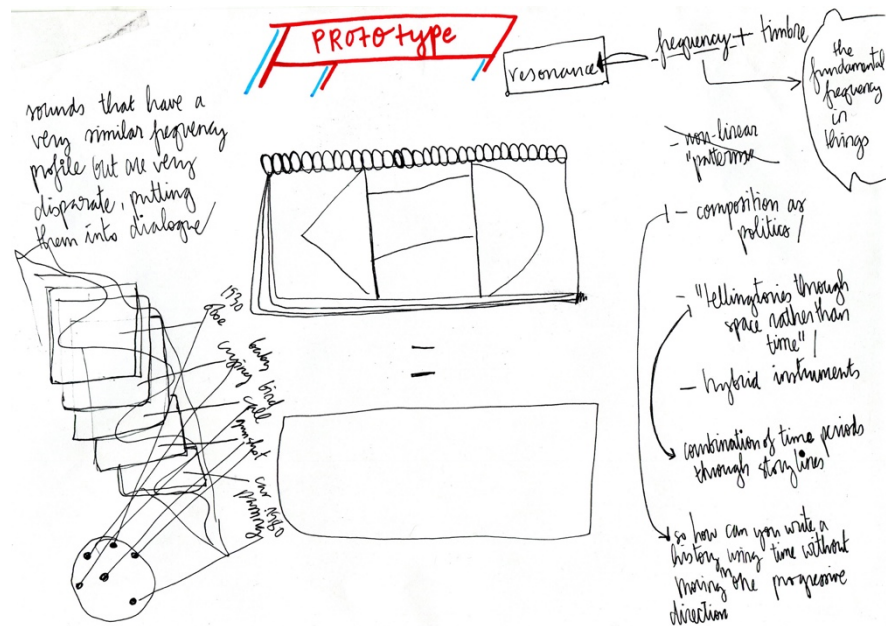 PROTOTYPE
resonance
frequency + timbre
the
fundamental
frequency
in
things
sounds that have a
very similar frequency
profile but are very
disparate, putting
them into dialogue/
- non-linear
"patterns"
- composition as
politics/
- "tellingtories through
space rather than
time"/
- hybrid instruments
combination of time periods
through storylines
so how can you write a
history using time without
moving in one progressive
direction
1930
oboe
baby
crying
bird
call
gunshot
car
passing